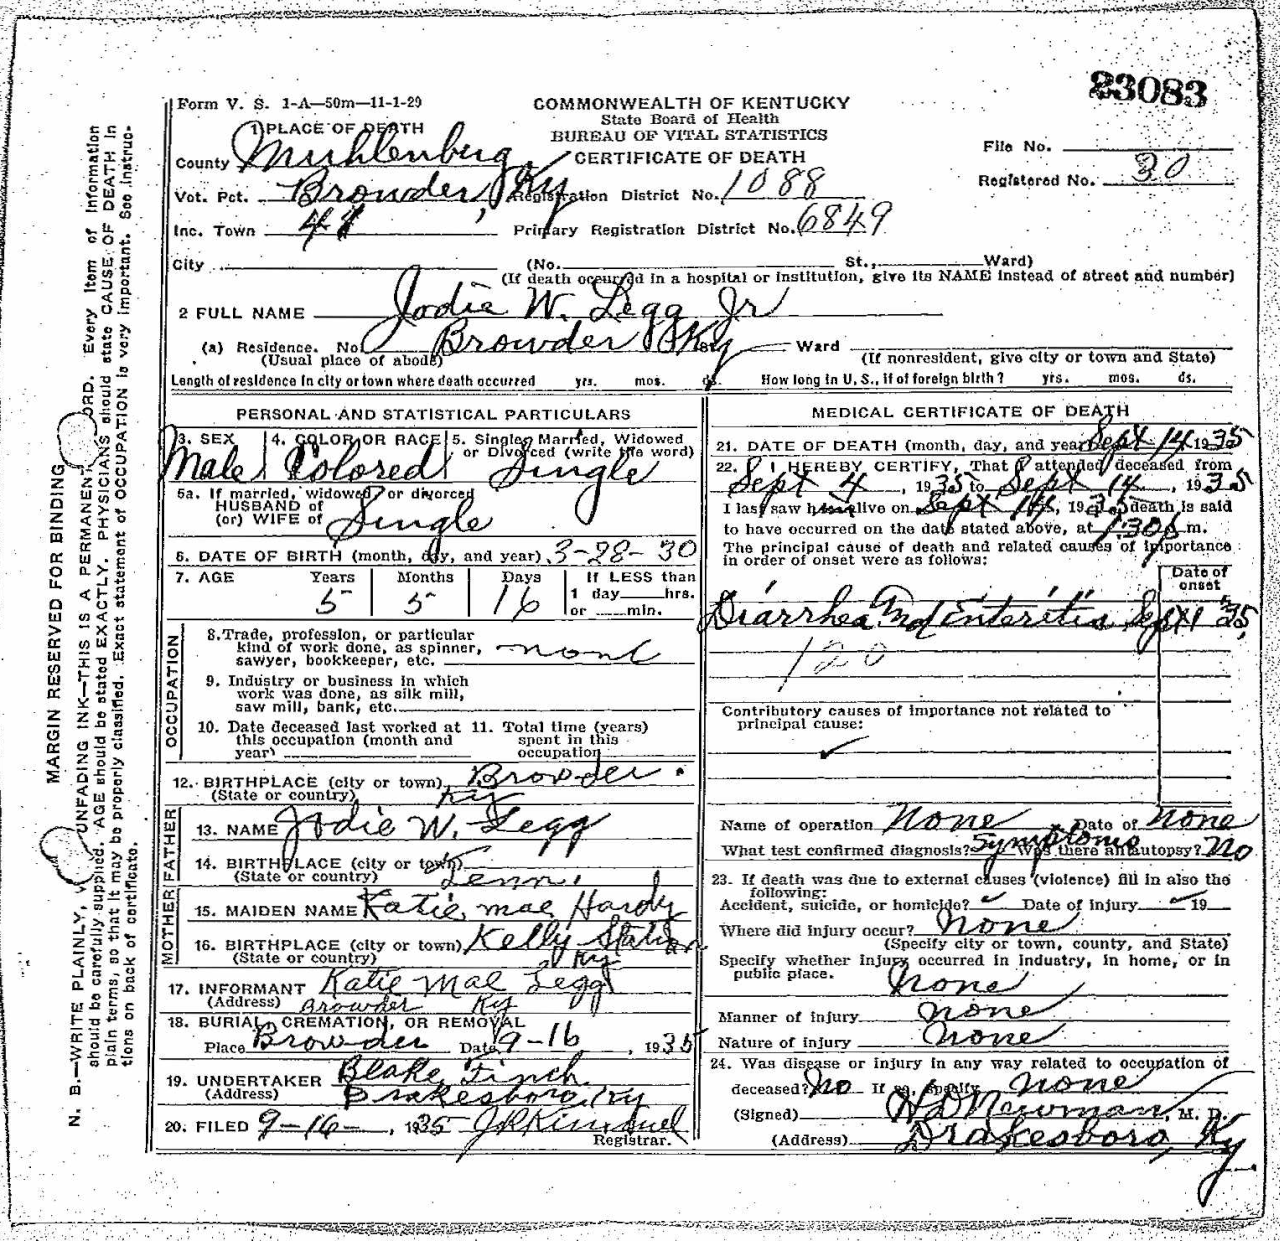 23083
Form V. S. 1-A—50m—11-1-29
COMMONWEALTH OF KENTUCKY
State Board of Health
BUREAU OF VITAL STATISTICS
CERTIFICATE OF DEATH
File No.
Registered No. 30
1 PLACE OF DEATH
County Muhlenburg
Vot. Pct. Browder, Ky Registration District No. 1088
Inc. Town Primary Registration District No. 6849
City (No. St., Ward)
(If death occurred in a hospital or institution, give its NAME instead of street and number)
2 FULL NAME Jodie W. Legg Jr
(a) Residence. No. Browder Ky St., Ward
(Usual place of abode) (If nonresident, give city or town and State)
Length of residence in city or town where death occurred yrs. mos. ds. How long in U. S., if of foreign birth? yrs. mos. ds.
PERSONAL AND STATISTICAL PARTICULARS
3. SEX 4. COLOR OR RACE 5. Single, Married, Widowed
or Divorced (write the word)
Male Colored Single
5a. If married, widowed, or divorced
HUSBAND of
(or) WIFE of Single
6. DATE OF BIRTH (month, day, and year) 3-28-30
7. AGE Years Months Days If LESS than
5 5 16 1 day hrs.
or min.
OCCUPATION
8. Trade, profession, or particular
kind of work done, as spinner,
sawyer, bookkeeper, etc. none
9. Industry or business in which
work was done, as silk mill,
saw mill, bank, etc.
10. Date deceased last worked at 11. Total time (years)
this occupation (month and spent in this
year) occupation
12. BIRTHPLACE (city or town) Browder
(State or country) Ky
FATHER
13. NAME Jodie W. Legg
14. BIRTHPLACE (city or town)
(State or country) Tenn.
MOTHER
15. MAIDEN NAME Katie Mae Hardy
16. BIRTHPLACE (city or town) Kelly Station
(State or country) Ky.
17. INFORMANT Katie Mae Legg
(Address) Browder Ky
18. BURIAL, CREMATION, OR REMOVAL
Place Browder Date 9-16, 1935
19. UNDERTAKER Blake Finch
(Address) Drakesboro, Ky
20. FILED 9-16-, 1935
Registrar.
MEDICAL CERTIFICATE OF DEATH
21. DATE OF DEATH (month, day, and year) Sept 14 1935
22. I HEREBY CERTIFY, That I attended deceased from
Sept 4, 1935 to Sept 14, 1935
I last saw him alive on Sept 14, 1935, death is said
to have occurred on the date stated above, at 1:30 p m.
The principal cause of death and related causes of importance
in order of onset were as follows:
Date of
onset
Diarrhea and Enteritis Sept 1 35
120
Contributory causes of importance not related to
principal cause:
Name of operation None Date of None
What test confirmed diagnosis? Symptoms Was there an autopsy? No
23. If death was due to external causes (violence) fill in also the
following:
Accident, suicide, or homicide? Date of injury 19
Where did injury occur? None
(Specify city or town, county, and State)
Specify whether injury occurred in industry, in home, or in
public place. None
Manner of injury none
Nature of injury None
24. Was disease or injury in any way related to occupation of
deceased? No If so, specify none
(Signed) H D Newman, M. D.
(Address) Drakesboro, Ky
MARGIN RESERVED FOR BINDING
N. B.—WRITE PLAINLY, UNFADING INK—THIS IS A PERMANENT RECORD. Every item of information
should be carefully supplied. AGE should be stated EXACTLY. PHYSICIANS should state CAUSE OF DEATH in
plain terms, so that it may be properly classified. Exact statement of OCCUPATION is very important. See instruc-
tions on back of certificate.